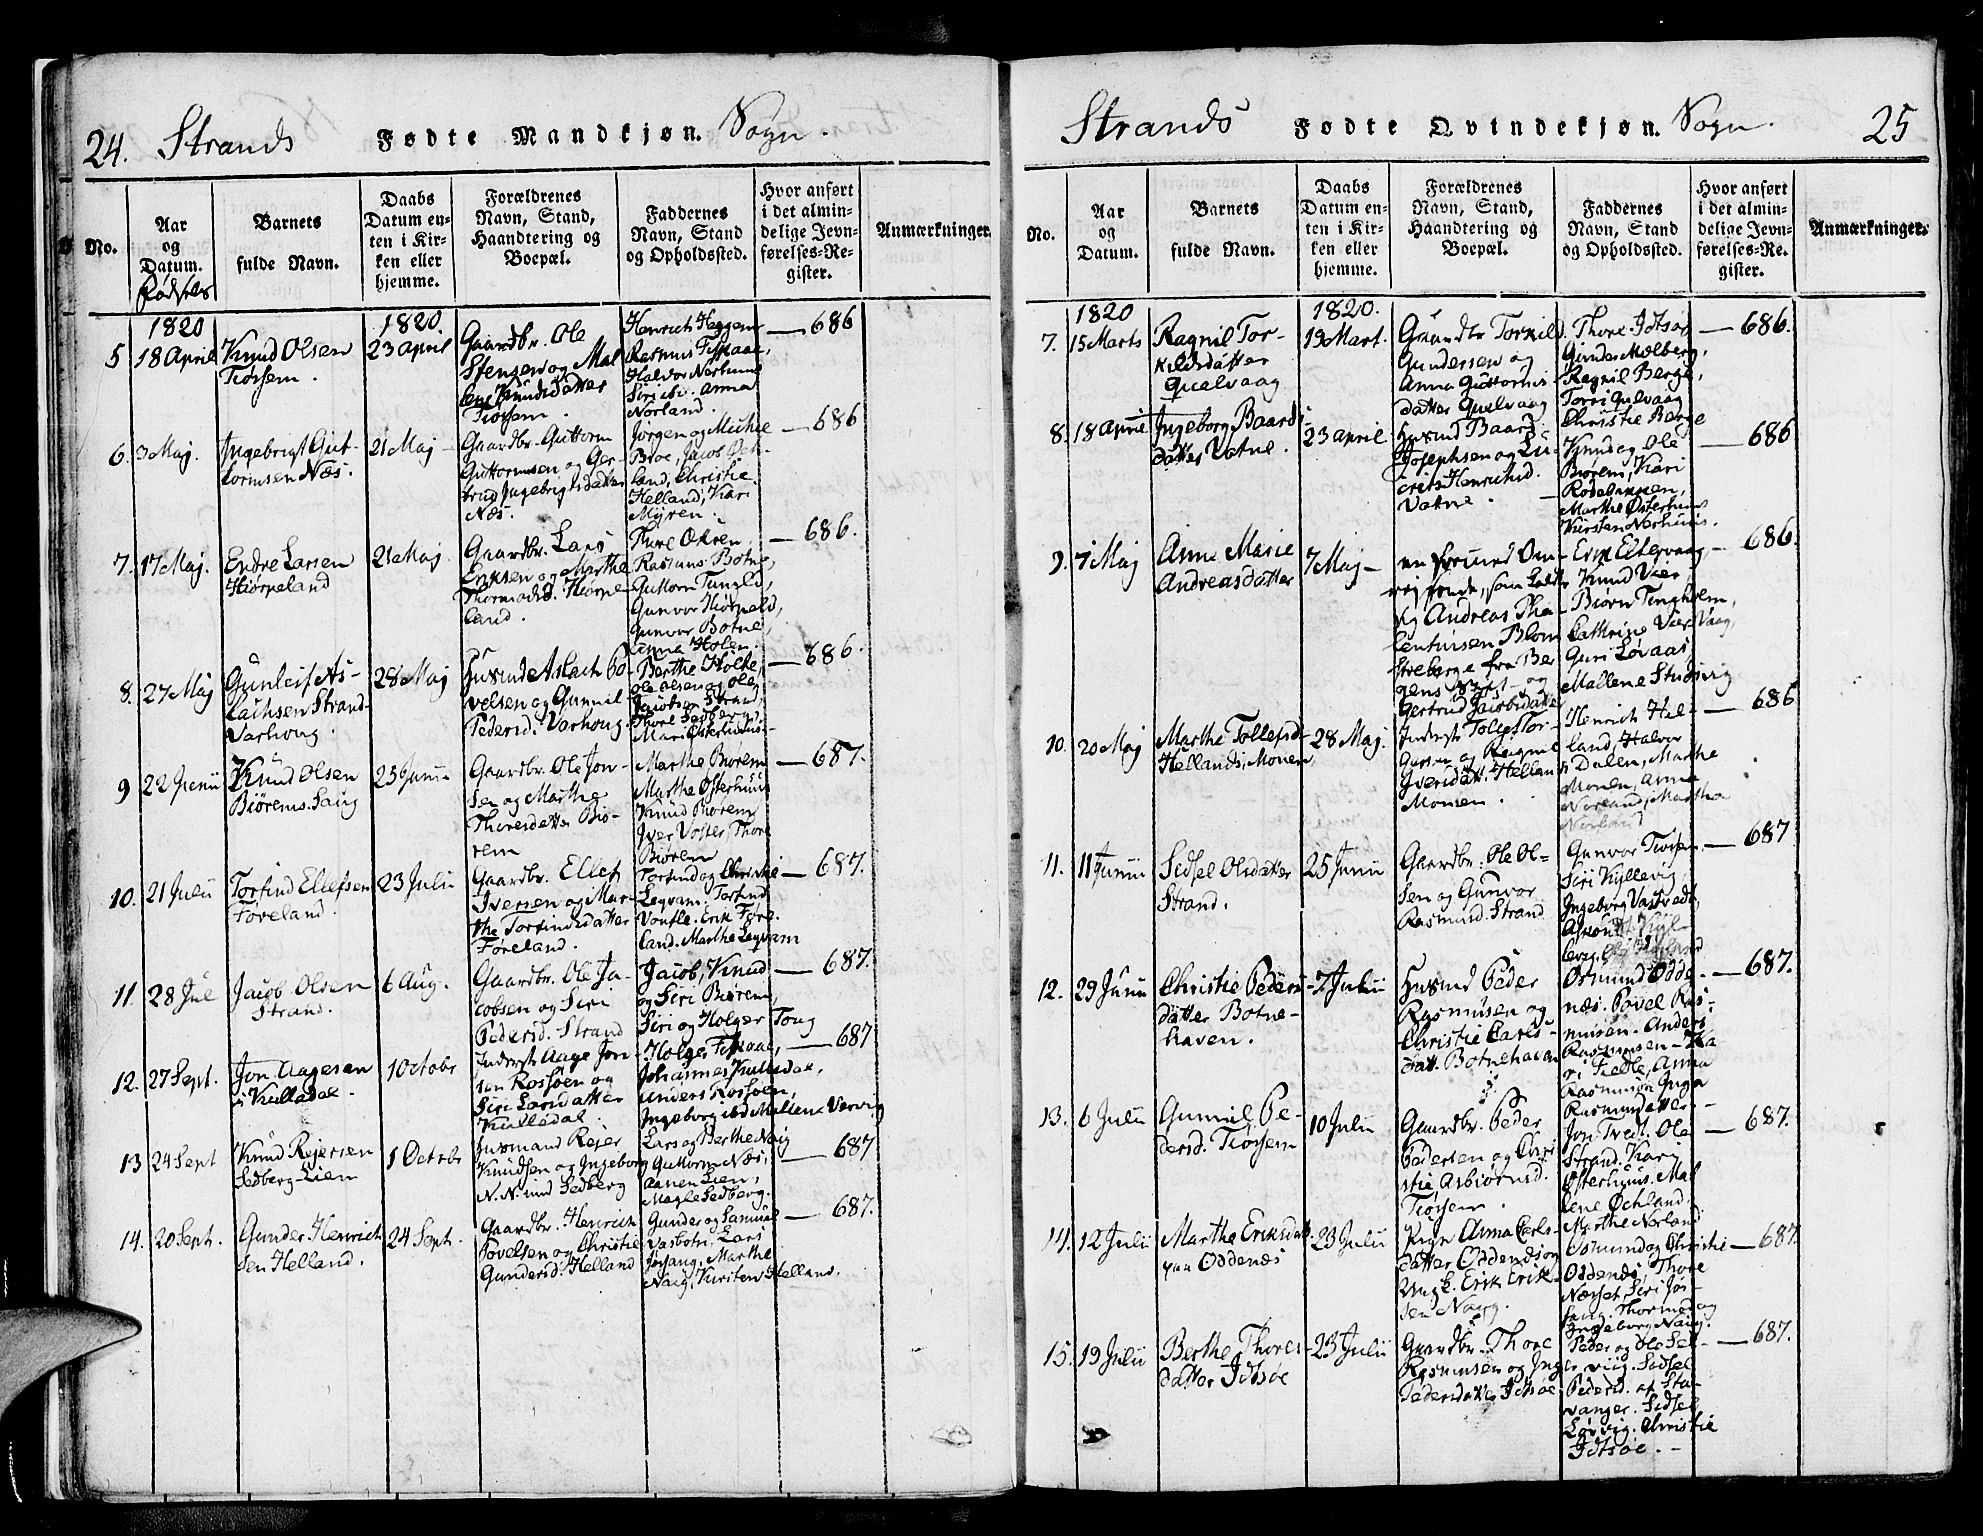 24. Strands Fødte Mandkjøn. Sogn.
No.
Aar
og
Datum.
Fødsels
Barnets
fulde Navn.
Daabs
Datum en-
ten i Kir-
ken eller
hjemme.
Forældrenes
Navn, Stand,
Haandtering og
Boepæl.
Faddernes
Navn, Stand
og Opholdssted.
Hvor anført
i det almin-
delige Jevn-
førelses-Re-
gister.
Anmærkninger.
1820
5 18 April
Knud Olsen
Tiørsem.
1820.
23 April
Gaardbr. Ole
Stensen og Mal
ene Knudsdatter
Tiørsem.
Henrich Heggem
Rasmus Fiskaae,
Halvor Nerhuus
Siri ibd. Anna
Norland.
686
6. 3 Maj.
Ingebrigt Gut-
tormsen Næs.
21 Maj
Gaardbr. Guttorm
Guttormsen og Ger-
trud Ingebrigtsdatter
Næs.
Jørgen og Michel
Broe, Jacob Øck-
land, Christie
Helland, Kari
Myren.
686
7. 17 Maj.
Endre Larsen
Hiørpeland
21 Maj.
Gaardbr. Lars
Eriksen og Marthe
Thormodsd. Hiørpe-
land.
Thore Økren,
Rasmus Botne,
Guttorm Tungld,
Gunvor Hiørpeld,
Gunvor Botne,
Anna Holen.
686.
8. 27 Maj
Gunleif As-
lachsen Strand-
Varhoug.
28 Maj
Husmd Aslach Po-
velsen og Gunnil
Pedersd. Varhoug.
Berthe Holte,
Ole Olsen og Ole
Jacobsen Strand,
Thore Sedberg,
Mari Østerhuus.
686.
9 22 Junii
Knud Olsen
Biørems. Saug
25 Junii
Gaardbr. Ole Jon-
sen og Marthe
Thoresdatter Biø-
rem
Marthe Biørem
Marthe Østerhuus
Knud Biørem
Iver Voster, Thore
Biørem
687.
10. 21 Julii
Torfind Ellefsen
Føreland.
23 Julii
Gaardbr. Ellef
Iversen og Mar-
the Torfindsdatter
Føreland.
Torfind og Christie
Leqvam. Torfind
Voutle. Erik Føre-
land. Marthe Leqvam
687.
11. 28 Jul
Jacob Olsen
Strand.
6 Aug.
Gaardbr. Ole Ja-
cobsen og Siri
Pedersd. Strand
Jacob, Knud
og Siri Biørem,
Siri og Holger Toug
687.
12. 27 Sept.
Jon Aagesen
i Kulledal.
1 Octobr
Inderst Aage Jon-
sen Rossøen og
Siri Larsdatter
Kulledal.
Holger Fiskaae,
Johannes Kulledal,
Anders Rossøen,
Ingeborg ibd Malene Vervig
687
13 24 Sept
Knud Rejersen
Sedberg-Lien
1 Octobr
Husmand Rejer
Knudsen og Ingeborg
N.N. und Sedberg
Lars og Berthe Naig
Guttorm Næs,
Aanen Lien,
Magle Sedberg.
687
14. 20 Sept.
Gunder Henrich
sen Helland.
24 Sept.
Gaardbr. Henrich
Povelsen og Christie
Gundersd. Helland
Gunder og Samuel
Vasbotn. Lars
Jøsang, Marthe
Naig, Kirsten Helland.
687.
Strands Fødte Qvindekjøn. Sogn. 25
No.
Aar
og
Datum.
Barnets
fulde Navn.
Daabs
Datum en-
ten i Kir-
ken eller
hjemme.
Forældrenes
Navn, Stand,
Haandtering og
Boepæl.
Faddernes
Navn, Stand
og Opholdssted.
Hvor anført
i det almin-
delige Jevn-
førelses-Re-
gister.
Anmærkninger.
1820
7. 15 Marts
Ragnil Tor-
kildsdatter
Qualvaag
1820.
19 Mart.
Gaardbr Torkild
Gundersen og
Anna Guttorms-
datter Qualvaag
Thore Idtsøe
Gunder Molberg,
Ragnil Berge,
Torri Qvelvaag
Christie Berge
686.
8. 18 April
Ingeborg Baards-
datter Vatne.
23 April
Husmd Baard
Josephsen og Lu-
cretz Henrichsd.
Vatne.
Knud og Ole
Biørem, Kari
Rødebakken,
Marthe Østerhuus
Kirsten Nerhuus.
686
9. 7 Maj
Anna Marie
Andreasdatter
7 Maj
en forund Om-
vej fonde, som kaldte
sig Andreas Tha-
lentinsen Blom
streberge fra Ber
gens Byes og
Gertrud Jacobsdatter
Erik Eltervaag
Knud Vier
Biørn Tungholm,
Cathrine Vier Vaag,
Guri Løvaas
Mallene Studsvig
686.
10. 20 Maj
Marthe Tollefsd-
Hellands Monen
28 Maj.
Inderst Tollef Tor-
gersen og Ragnil
Iversdatt. Hellands
Monen.
Henrich Hel-
land, Halvor
i Dalen, Marthe
Monen, Anna
Norland, Martha
Norland
686
11. 11 Junii
Sidsel Olsdatter
Strand.
25 Junii
Gaardbr. Ole Ol-
sen og Gunvor
Rasmusd. Strand
Gunvor Tiørsem
Siri Kyllevig,
Ingeborg Vastvedt,
687
12. 29 Junii
Christie Peders-
datter Botne-
haven.
7 Julii
Husmd Peder
Rasmusen og
Christie Carls-
datt. Botnehaven
Osmund Odde-
næs. Povel Ras-
musen. Anders
Rasmusen - Ka
ri Fielle, Anna
Rasmusd. Inga
Rasmusdatter
687.
13. 6 Julii
Gunnil Pe-
dersd. Tiørsem
10 Julii
Gaardbr. Peder
Pedersen og Chri
stie Asbiørnsd.
Tiørsem.
Jon Tvedt. Ole
Strand. Kari
Østerhuus. Mal
lene Øchland.
Marthe Norland
687.
14. 12 Julii
Marthe Eriksdatt.
paa Oddenæs
23 Julii
Pige Anna Carls-
datter Oddenæs og
Ungk. Erik Erik-
sen Naig.
Osmund og Christie
Oddenæs, Thore
Næset, Siri Jøs-
sang, Thormod og
Ingeborg Naig.
687.
15. 19 Julii
Berthe Thores-
datter Idtsøe
23 Julii
Gaardbr. Thore
Rasmusen og Inger
Pedersdatter Idtsøe
Peder og Ole Sel-
viig. Sidsel
Pedersd. af Sta-
vanger. Sidsel
Løvvig. Christie
Idtsøe.
687.